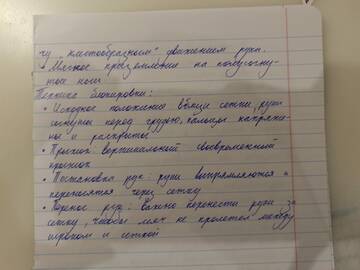 чу "хлыстообразным" движением руки.
• Мягкое приземление на полусогну-
тые ноги
Техника блокировки:
• Исходное положение вблизи сетки, руки
согнуты перед грудью, пальцы напряже-
ны и раскрыты
• Прыжок: вертикальный своевременный
прыжок
• Постановка рук: руки выпрямляются и
переносятся через сетку
• Перенос рук: важно перенести руки за
сетку, чтобы мяч не пролетел между
игроком и сеткой